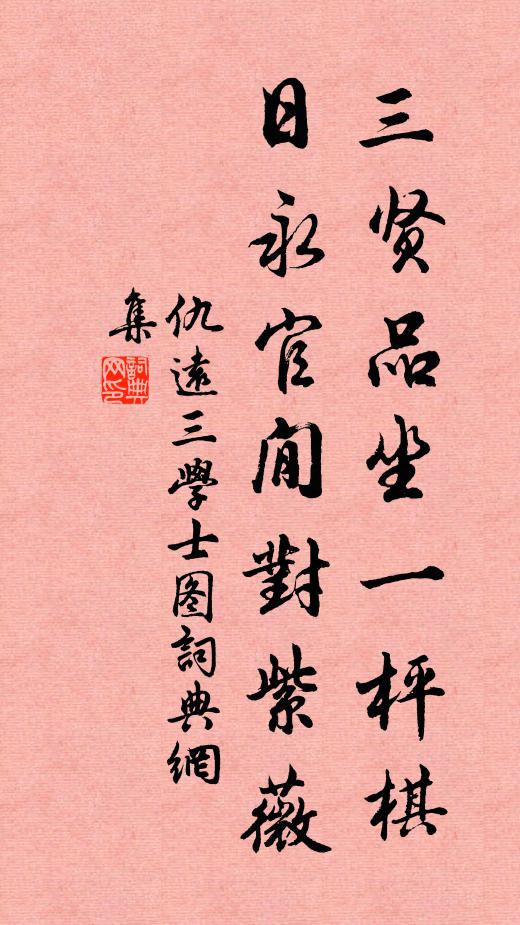 三贤品坐一枰棋
日永官閒對紫薇
仇遠三學士图詞典網
集
詞典
网印